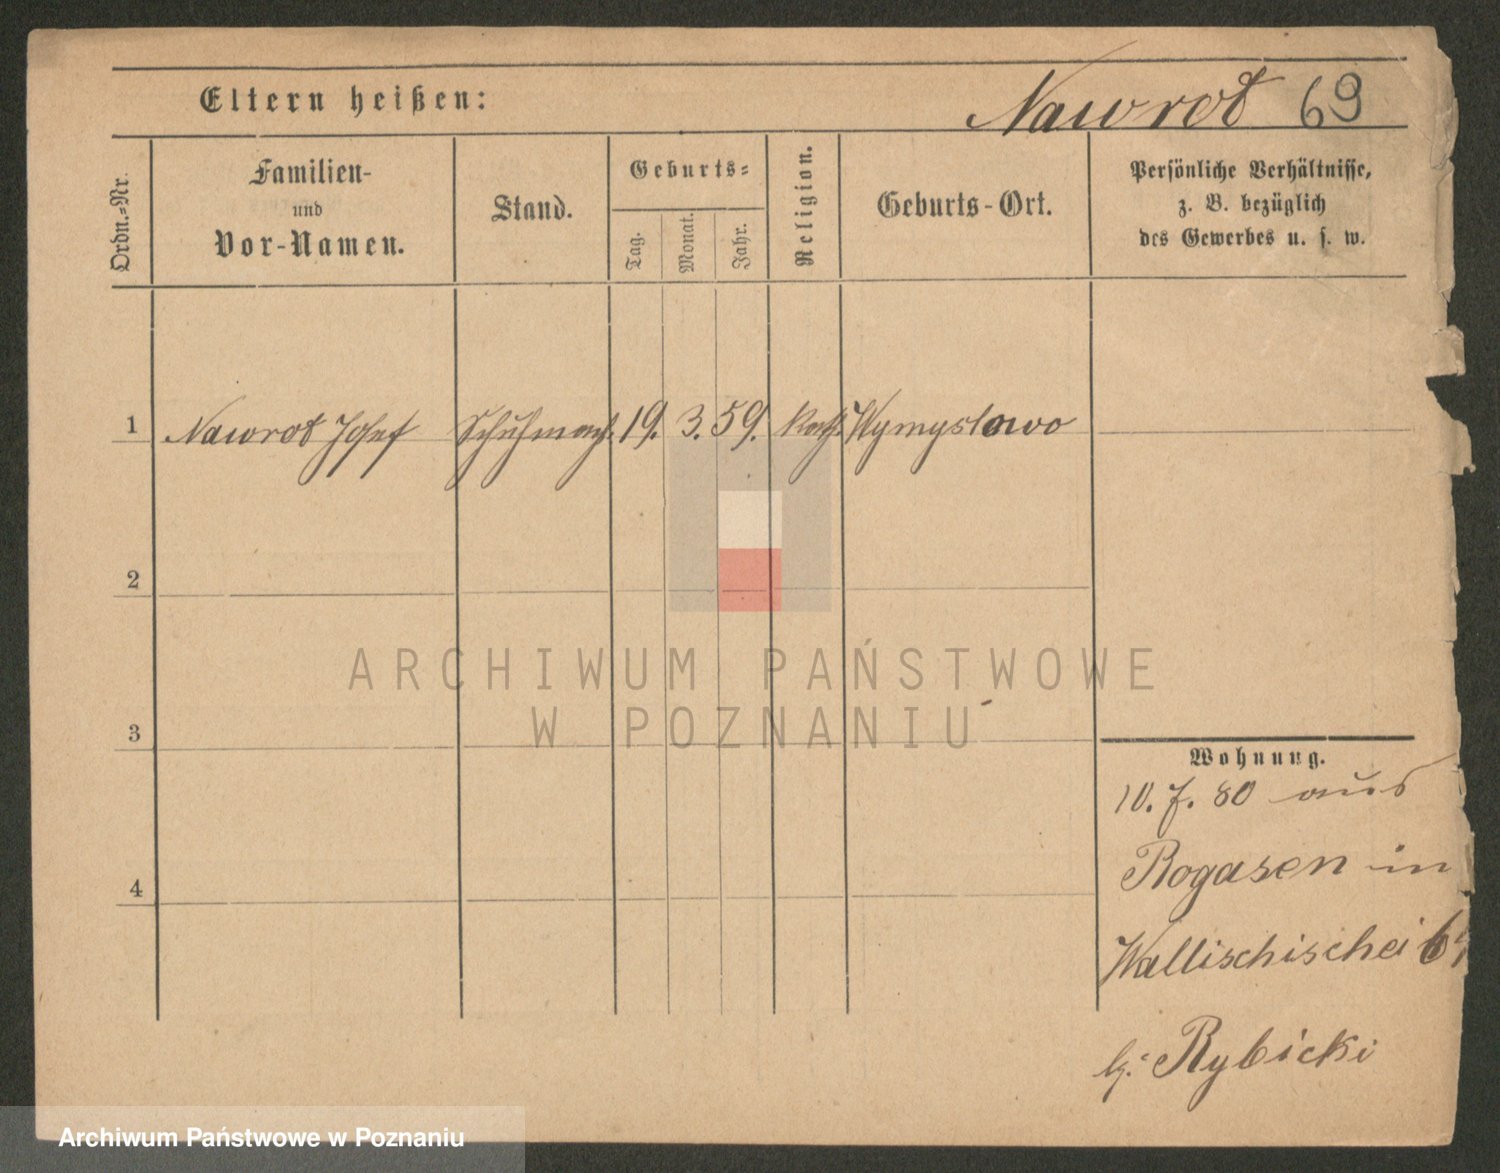 Eltern heißen:
Nawrot 69
Ordn.=Nr.
Familien-
und
Vor-Namen.
Stand.
Geburts=
Tag.
Monat.
Jahr.
Religion.
Geburts-Ort.
Persönliche Verhältnisse,
z. B. bezüglich
des Gewerbes u. s. w.
1 Nawrot Josef Schuhmach. 19. 3. 59. Kath. Wymyslowo
2
3
4
Wohnung.
10. 7. 80 aus
Rogasen in
Wallischischei
b: Rybicki
ARCHIWUM PAŃSTWOWE
W POZNANIU
Archiwum Państwowe w Poznaniu